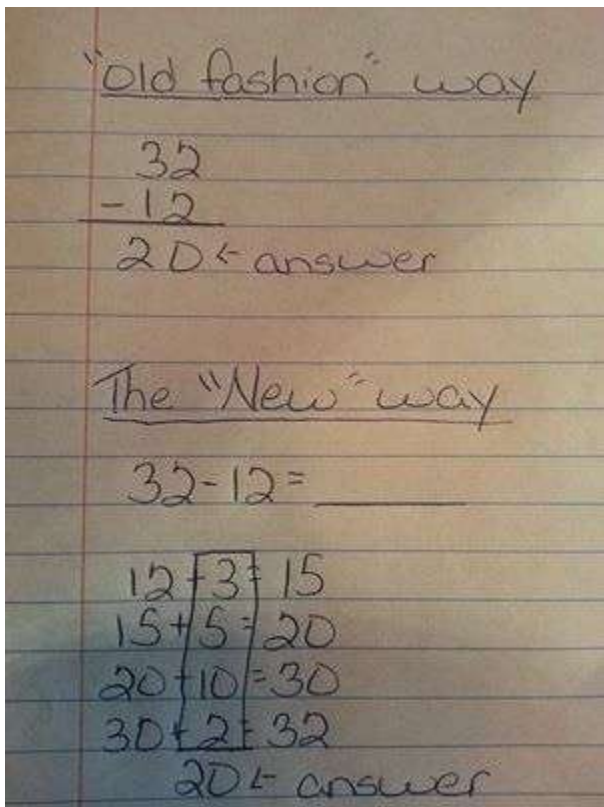 "Old fashion" way
32
-12
20 ← answer
The "New" way
32-12= ______
12+3=15
15+5=20
20+10=30
30+2=32
20 ← answer